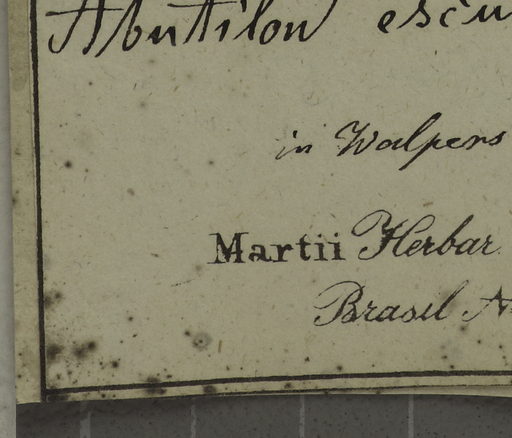 Abutilon escu
in Walpers
Martii Herbar.
Brasil